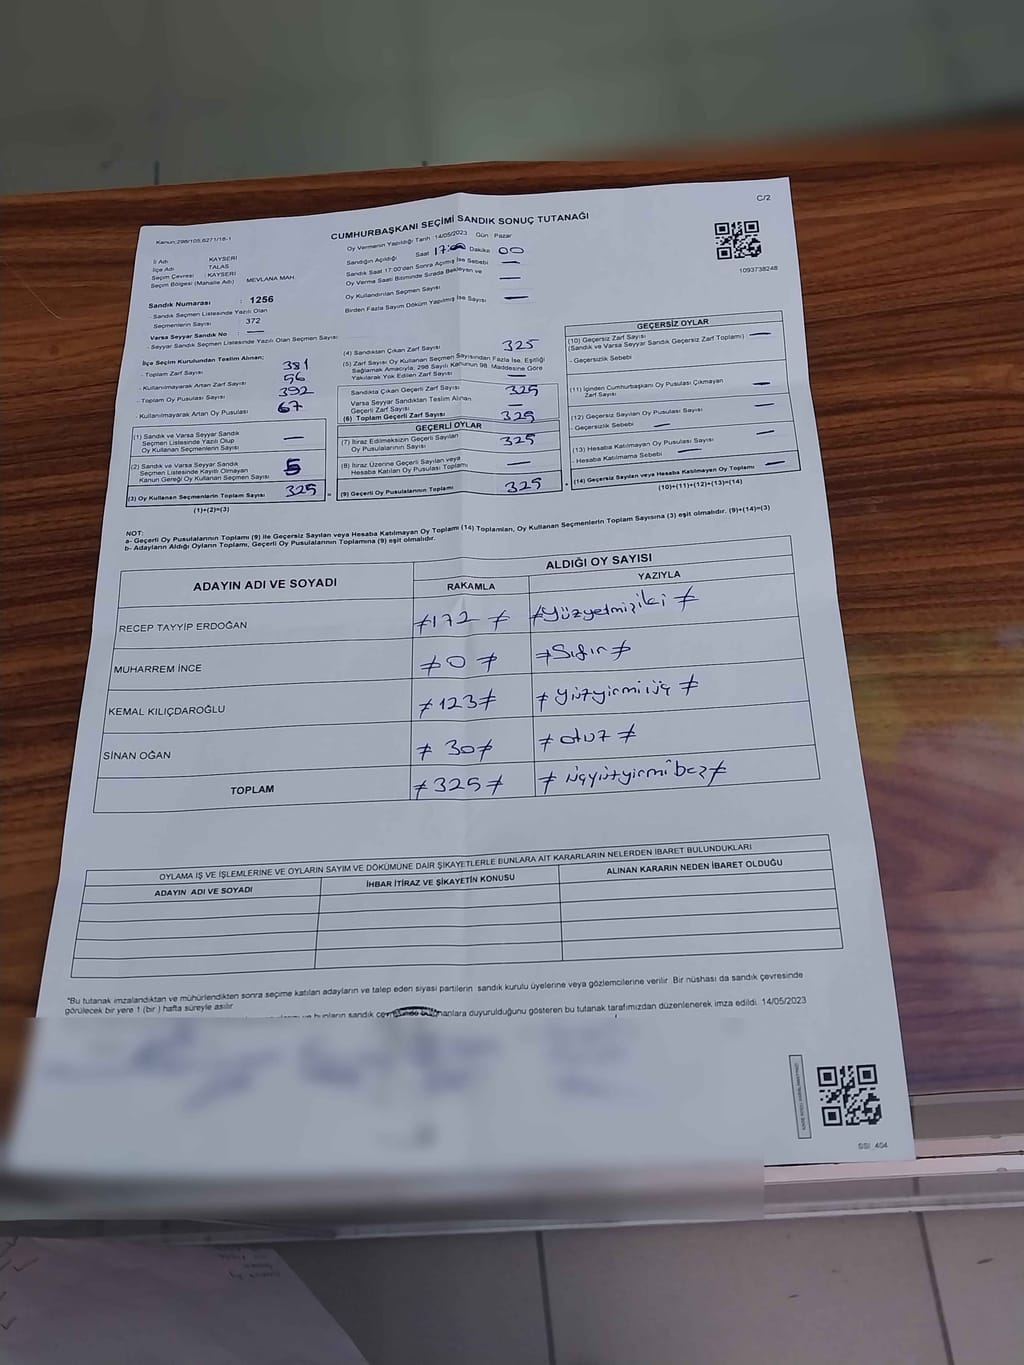 C/2
Kanun:298/105,6271/16-1
CUMHURBAŞKANI SEÇİMİ SANDIK SONUÇ TUTANAĞI
1093738248
İl Adı : KAYSERİ
İlçe Adı : TALAS
Seçim Çevresi : KAYSERİ
Seçim Bölgesi (Mahalle Adı) : MEVLANA MAH.
Sandık Numarası : 1256
- Sandık Seçmen Listesinde Yazılı Olan
Seçmenlerin Sayısı 372
Varsa Seyyar Sandık No : —
- Seyyar Sandık Seçmen Listesinde Yazılı Olan Seçmen Sayısı:
Oy Vermenin Yapıldığı Tarih :14/05/2023 Gün : Pazar
Sandığın Açıldığı Saat 17:00 Dakika 00
Sandık Saat 17:00'den Sonra Açılmış İse Sebebi —
Oy Verme Saati Bitiminde Sırada Bekleyen ve
Oy Kullandırılan Seçmen Sayısı —
Birden Fazla Sayım Döküm Yapılmış İse Sayısı —
İlçe Seçim Kurulundan Teslim Alınan;
- Toplam Zarf Sayısı 381
- Kullanılmayarak Artan Zarf Sayısı 56
- Toplam Oy Pusulası Sayısı 392
- Kullanılmayarak Artan Oy Pusulası 67
(1) Sandık ve Varsa Seyyar Sandık
Seçmen Listesinde Yazılı Olup
Oy Kullanan Seçmenlerin Sayısı —
(2) Sandık ve Varsa Seyyar Sandık
Seçmen Listesinde Kayıtlı Olmayan
Kanun Gereği Oy Kullanan Seçmen Sayısı 5
(3) Oy Kullanan Seçmenlerin Toplam Sayısı 325 =
(1)+(2)=(3)
(4) Sandıktan Çıkan Zarf Sayısı 325
(5) Zarf Sayısı Oy Kullanan Seçmen Sayısından Fazla İse, Eşitliği
Sağlamak Amacıyla; 298 Sayılı Kanunun 98. Maddesine Göre
Yakılarak Yok Edilen Zarf Sayısı —
Sandıkta Çıkan Geçerli Zarf Sayısı 325
Varsa Seyyar Sandıktan Teslim Alınan
Geçerli Zarf Sayısı —
(6) Toplam Geçerli Zarf Sayısı 325
GEÇERLİ OYLAR
(7) İtiraz Edilmeksizin Geçerli Sayılan
Oy Pusulalarının Sayısı 325
(8) İtiraz Üzerine Geçerli Sayılan veya
Hesaba Katılan Oy Pusulası Toplamı —
(9) Geçerli Oy Pusulalarının Toplamı 325 +
GEÇERSİZ OYLAR
(10) Geçersiz Zarf Sayısı —
(Sandık ve Varsa Seyyar Sandık Geçersiz Zarf Toplamı)
- Geçersizlik Sebebi
(11) İçinden Cumhurbaşkanı Oy Pusulası Çıkmayan
Zarf Sayısı —
(12) Geçersiz Sayılan Oy Pusulası Sayısı —
- Geçersizlik Sebebi —
(13) Hesaba Katılmayan Oy Pusulası Sayısı —
- Hesaba Katılmama Sebebi —
(14) Geçersiz Sayılan veya Hesaba Katılmayan Oy Toplamı —
(10)+(11)+(12)+(13)=(14)
NOT:
a- Geçerli Oy Pusulalarının Toplamı (9) ile Geçersiz Sayılan veya Hesaba Katılmayan Oy Toplamı (14) Toplamları, Oy Kullanan Seçmenlerin Toplam Sayısına (3) eşit olmalıdır. (9)+(14)=(3)
b- Adayların Aldığı Oyların Toplamı, Geçerli Oy Pusulalarının Toplamına (9) eşit olmalıdır.
ADAYIN ADI VE SOYADI ALDIĞI OY SAYISI
RAKAMLA YAZIYLA
RECEP TAYYİP ERDOĞAN ≠172≠ ≠Yüzyetmişiki≠
MUHARREM İNCE ≠0≠ ≠Sıfır≠
KEMAL KILIÇDAROĞLU ≠123≠ ≠yüzyirmiüç≠
SİNAN OĞAN ≠30≠ ≠otuz≠
TOPLAM ≠325≠ ≠üçyüzyirmibeş≠
OYLAMA İŞ VE İŞLEMLERİNE VE OYLARIN SAYIM VE DÖKÜMÜNE DAİR ŞİKAYETLERLE BUNLARA AİT KARARLARIN NELERDEN İBARET BULUNDUKLARI
ADAYIN ADI VE SOYADI İHBAR İTİRAZ VE ŞİKAYETİN KONUSU ALINAN KARARIN NEDEN İBARET OLDUĞU
"Bu tutanak imzalandıktan ve mühürlendikten sonra seçime katılan adayların ve talep eden siyasi partilerin sandık kurulu üyelerine veya gözlemcilerine verilir. Bir nüshası da sandık çevresinde
görülecek bir yere 1 (bir ) hafta süreyle asılır.
ve bunların sandık duyurulduğunu gösteren bu tutanak tarafımızdan düzenlenerek imza edildi. 14/05/2023
SSI_404